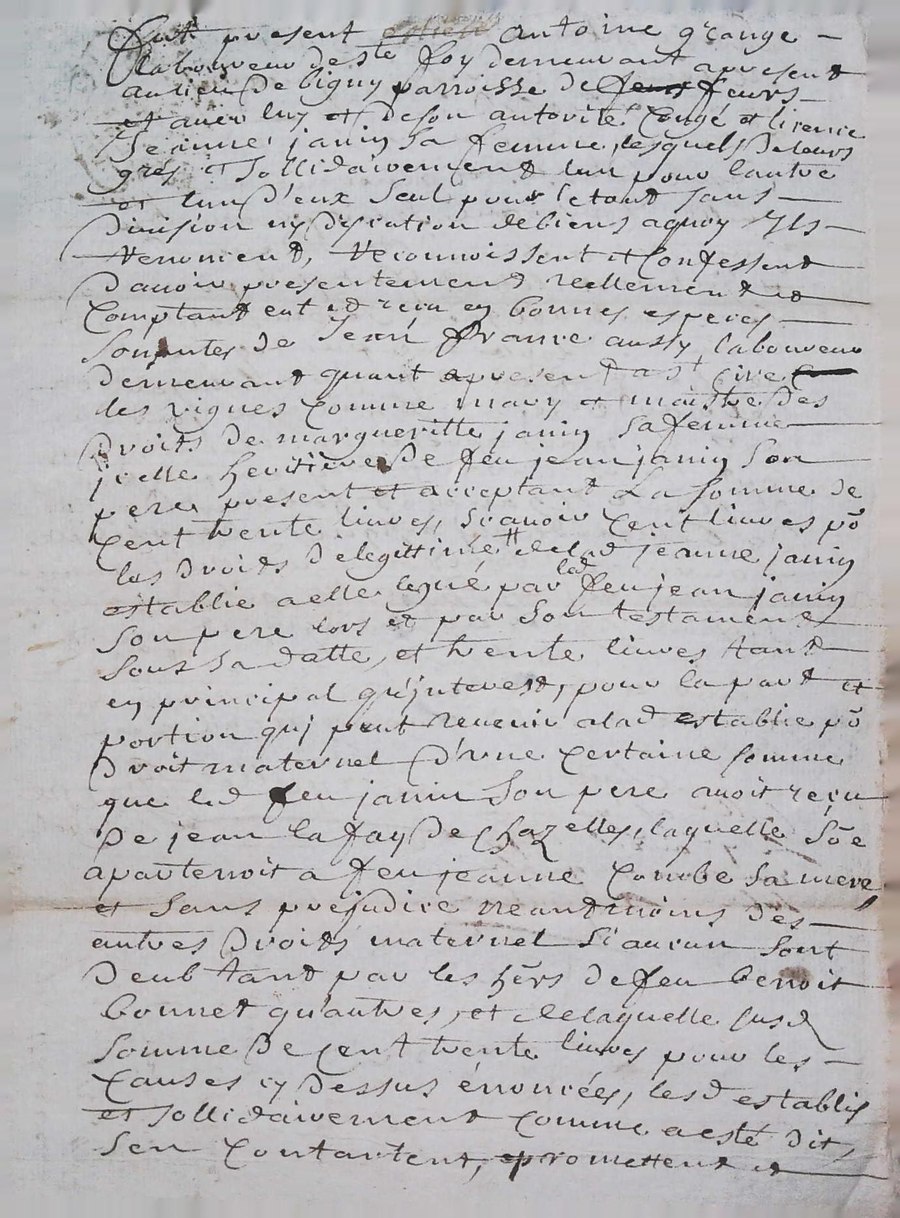 fut present Antoine grange
laboureur de ste foy demeurant apresent
au lieu de bigny parroisse de feurs
et avec luy et de son autorité congé et licence
Jeanne janin sa femme, lesquels de leurs
grez et sollidairement l'un pour l'autre
et lun d'eux seul pour le tout sans
division ny discution de biens aquoy Ils
renoncent, reconnoissent et confessent
d'avoir presentement reellement et
comptant eut et recu en bonnes especes
sonantes de france aussy laboureur
demeurant quant apresent a st cire
les vignes comme mary et maistre des
droits de margueritte janin sa femme
icelle heritiere de feu jean janin son
pere present et acceptant La somme de
cent trente livres, sçavoir cent livres po
les droits de legittime de lad jeanne janin
establie a elle legué par led feu jean janin
son pere lors et par son testament
sous sa datte, et trente livres tant
en principal qu'interest, pour la part et
portion qui peut revenir alad establie po
droit maternel d'une certaine somme
que led feu janin son pere avoit reçu
de jean la fay de chazelles, laquelle sõe
apartenoit a feu jeanne combe sa mere
et sans prejudice neantmoins des
autres droits maternel si aucun sont
deub tant par les hers de feu benoit
bonnet qu'autres, et de laquelle susd
somme de cent trente livres pour les
causes cy dessus énoncées, lesd establis
et sollidairement comme a esté dit,
sen contantent, promettent et